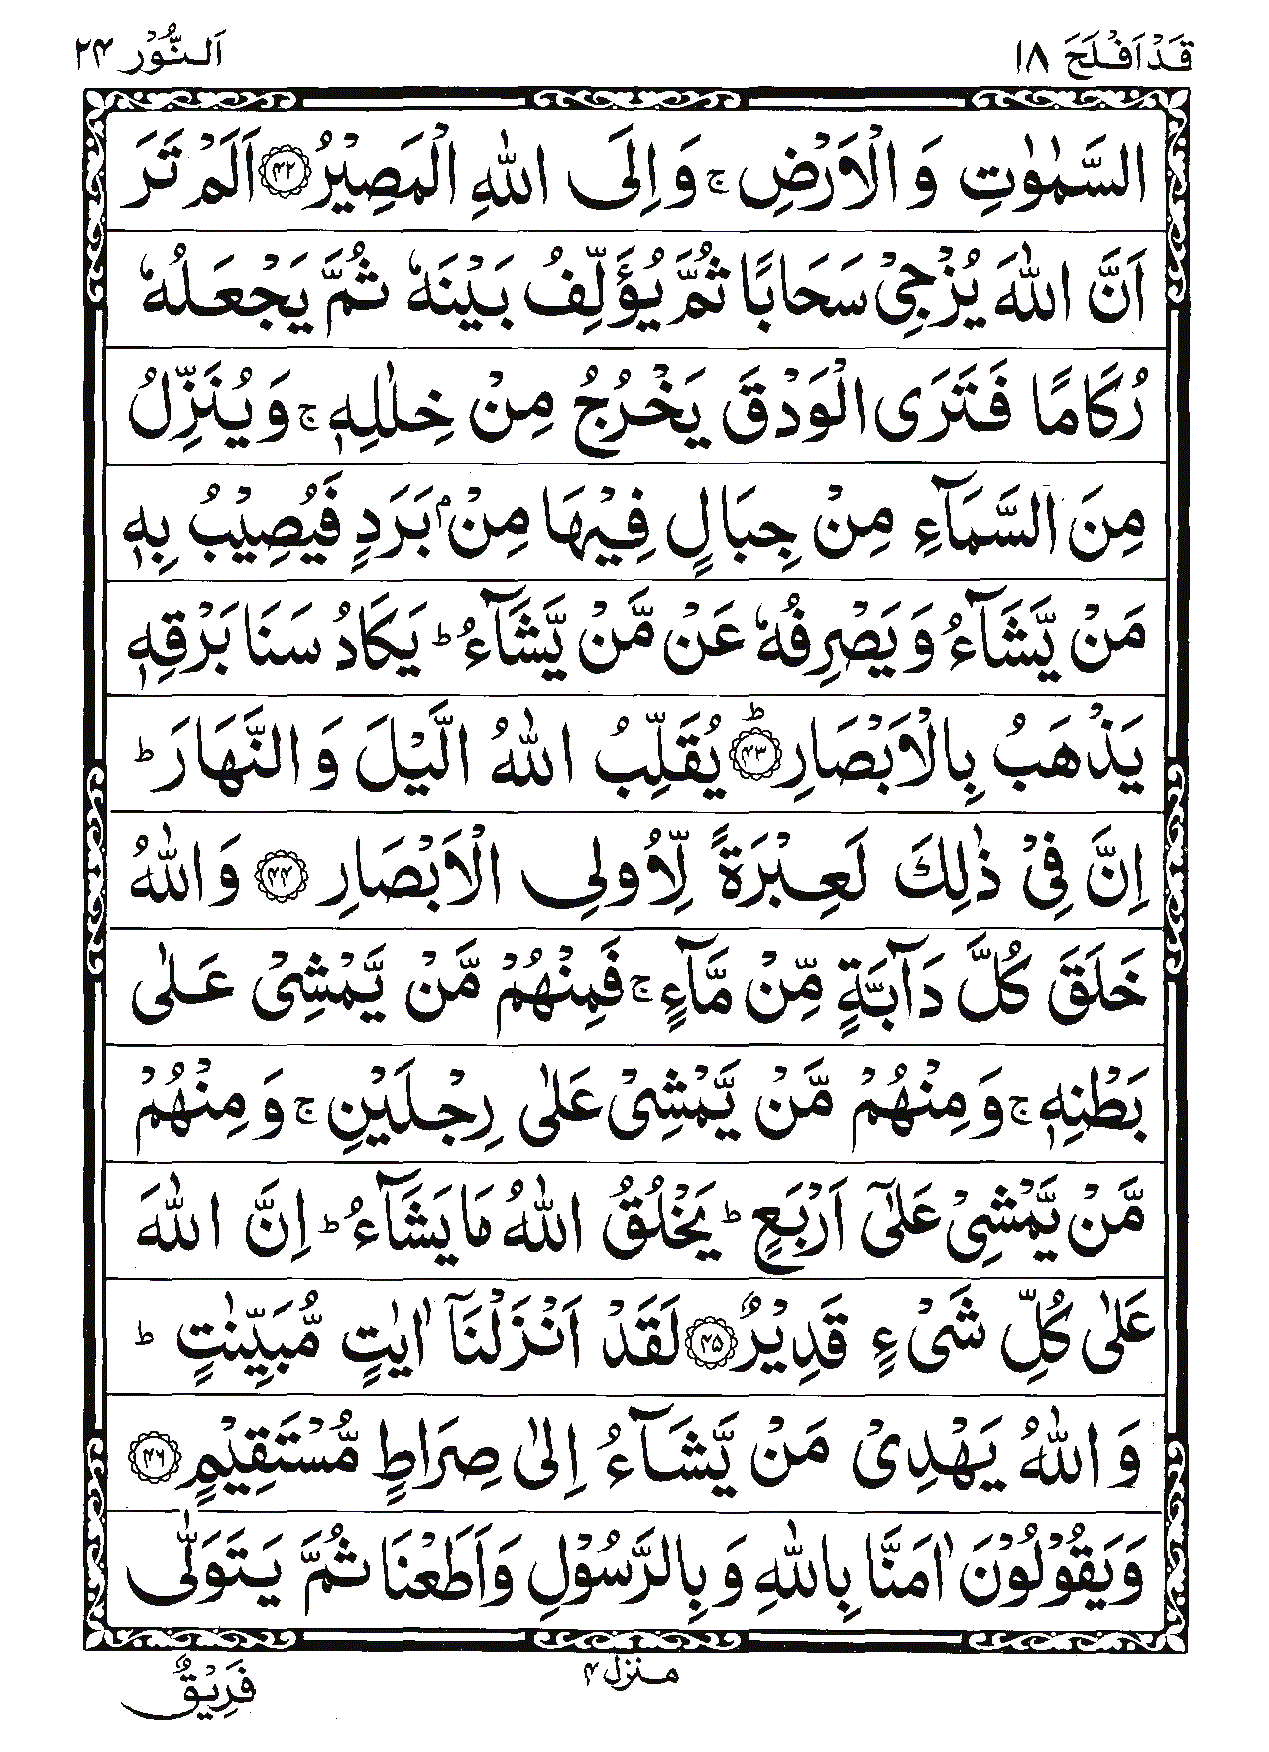 قَدْ اَفْلَحَ ۱۸
اَلنُّوْر ۲۴
السَّمٰوٰتِ وَ الْاَرْضِ ۚ وَ اِلَى اللّٰهِ الْمَصِیْرُ ﴿۴۲﴾ اَلَمْ تَرَ
اَنَّ اللّٰهَ یُزْجِیْ سَحَابًا ثُمَّ یُؤَلِّفُ بَیْنَهٗ ثُمَّ یَجْعَلُهٗ
رُكَامًا فَتَرَی الْوَدْقَ یَخْرُجُ مِنْ خِلٰلِهٖ ۚ وَ یُنَزِّلُ
مِنَ السَّمَآءِ مِنْ جِبَالٍ فِیْهَا مِنْۢ بَرَدٍ فَیُصِیْبُ بِهٖ
مَنْ یَّشَآءُ وَ یَصْرِفُهٗ عَنْ مَّنْ یَّشَآءُ ؕ یَكَادُ سَنَا بَرْقِهٖ
یَذْهَبُ بِالْاَبْصَارِ ﴿۴۳﴾ؕ یُقَلِّبُ اللّٰهُ الَّیْلَ وَ النَّهَارَ ؕ
اِنَّ فِیْ ذٰلِكَ لَعِبْرَةً لِّاُولِی الْاَبْصَارِ ﴿۴۴﴾ وَ اللّٰهُ
خَلَقَ كُلَّ دَآبَّةٍ مِّنْ مَّآءٍ ۚ فَمِنْهُمْ مَّنْ یَّمْشِیْ عَلٰی
بَطْنِهٖ ۚ وَ مِنْهُمْ مَّنْ یَّمْشِیْ عَلٰی رِجْلَیْنِ ۚ وَ مِنْهُمْ
مَّنْ یَّمْشِیْ عَلٰۤی اَرْبَعٍ ؕ یَخْلُقُ اللّٰهُ مَا یَشَآءُ ؕ اِنَّ اللّٰهَ
عَلٰی كُلِّ شَیْءٍ قَدِیْرٌ ﴿۴۵﴾ لَقَدْ اَنْزَلْنَاۤ اٰیٰتٍ مُّبَیِّنٰتٍ ؕ
وَ اللّٰهُ یَهْدِیْ مَنْ یَّشَآءُ اِلٰی صِرَاطٍ مُّسْتَقِیْمٍ ﴿۴۶﴾
وَ یَقُوْلُوْنَ اٰمَنَّا بِاللّٰهِ وَ بِالرَّسُوْلِ وَ اَطَعْنَا ثُمَّ یَتَوَلّٰی
منزل ۴
فَرِیْقٌ